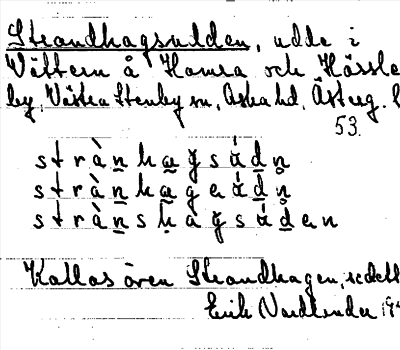 Strandhagsudden, udde i
Vättern å Hamra och Hässle
by, Västra Stenby sn, Aska hd, Österg. l
53.
s t r à n h a g s á d n
s t r à n h a g e á d n
s t r à n s h a g s á d e n
Kallas även Strandhagen, se detta
Erik Nordlinder 19